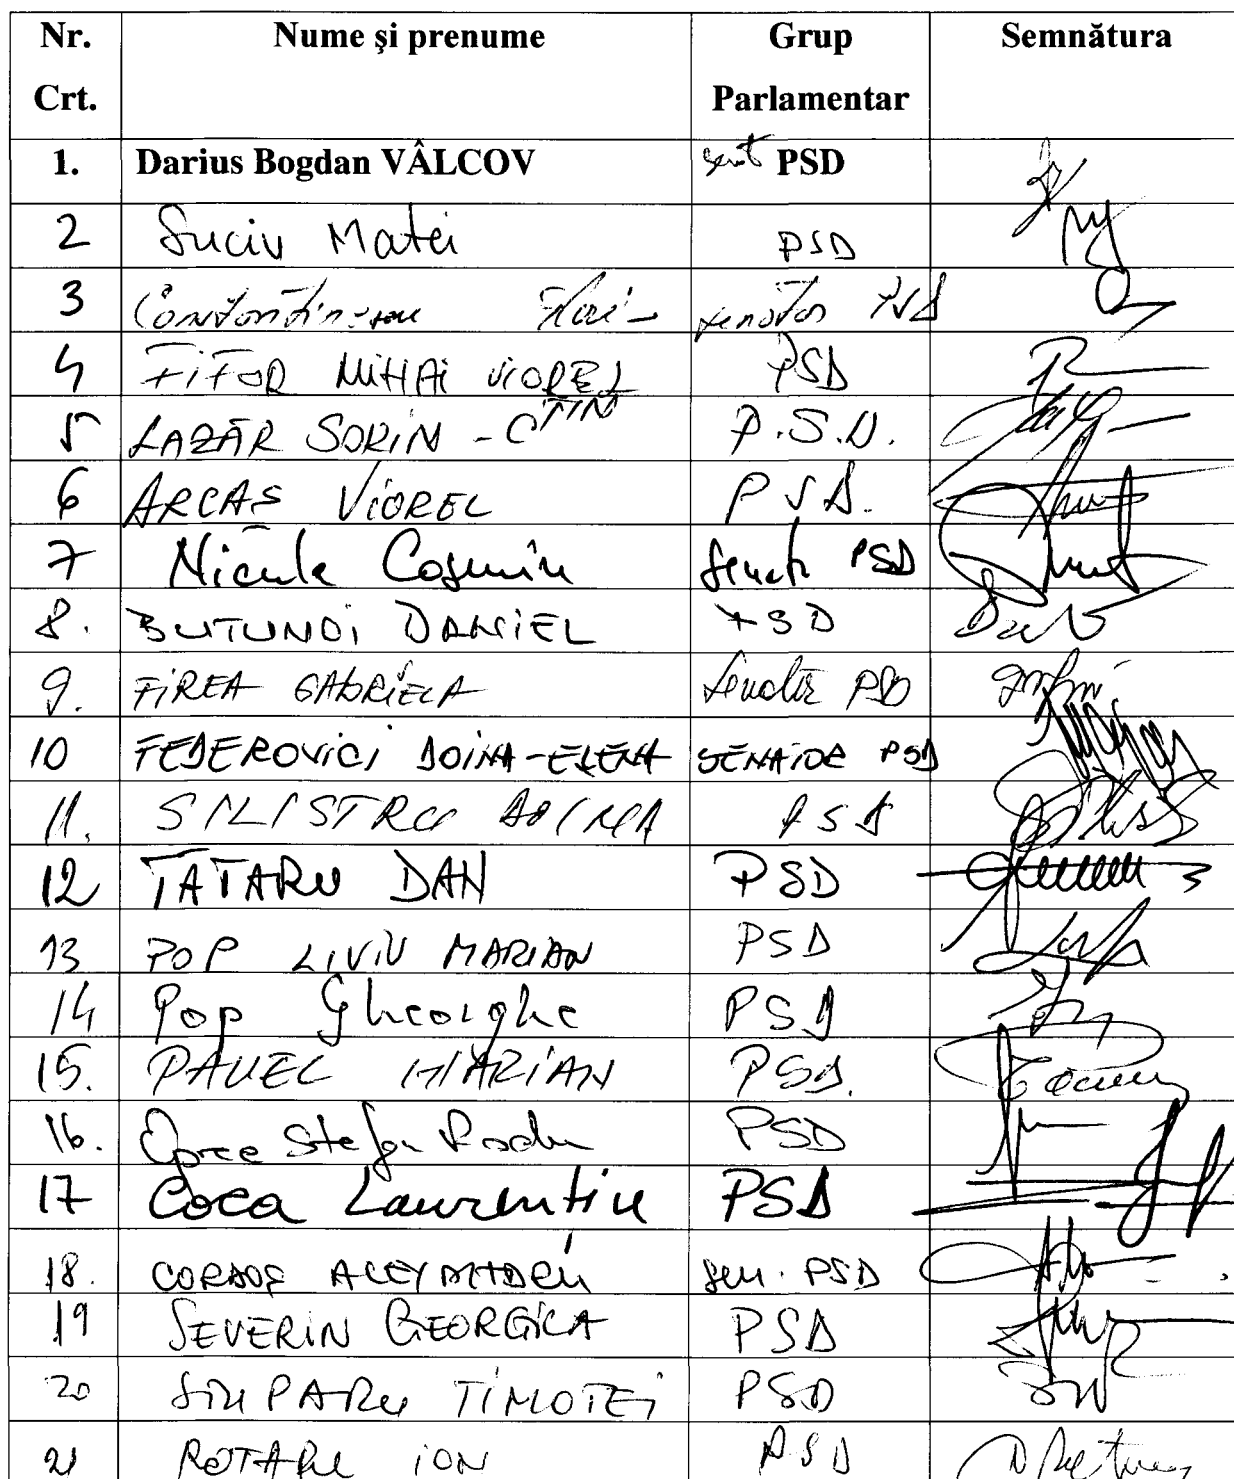 Nr. Crt. Nume şi prenume Grup Parlamentar Semnătura
1. Darius Bogdan VÂLCOV PSD
2 Suciu Matei PSD
3 Constantinescu senator PSD
4 FIFOR MIHAI VIOREL PSD
5 LAZĂR SORIN - CTIN P.S.D.
6 ARCAŞ VIOREL PSD.
7 Nicula Cosmin senator PSD
8. BUTUNOI DANIEL PSD
9. FIREA GABRIELA senator PSD
10 FEDEROVICI DOINA-ELENA SENATOR PSD
11. SILISTRU DOINA PSD
12 TĂTARU DAN PSD
13 POP LIVIU MARIAN PSD
14 Pop Gheorghe PSD
15. PAVEL MARIAN PSD.
16. Oprea Stefan Radu PSD
17 Coca Laurentiu PSD
18. CORDOŞ ALEXANDRU sen. PSD
19 SEVERIN GEORGICA PSD
20 TIMOTEI PSD
21 ROTARU ION PSD